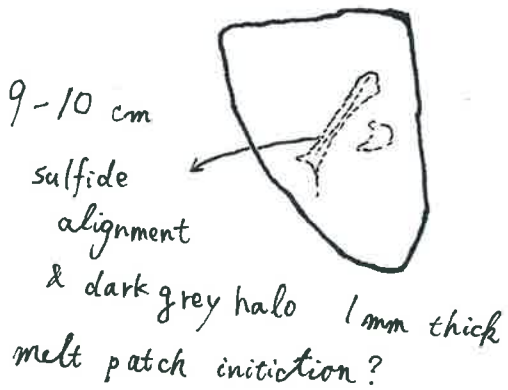 9-10 cm
sulfide
alignment
& dark grey halo 1 mm thick
melt patch initiction?